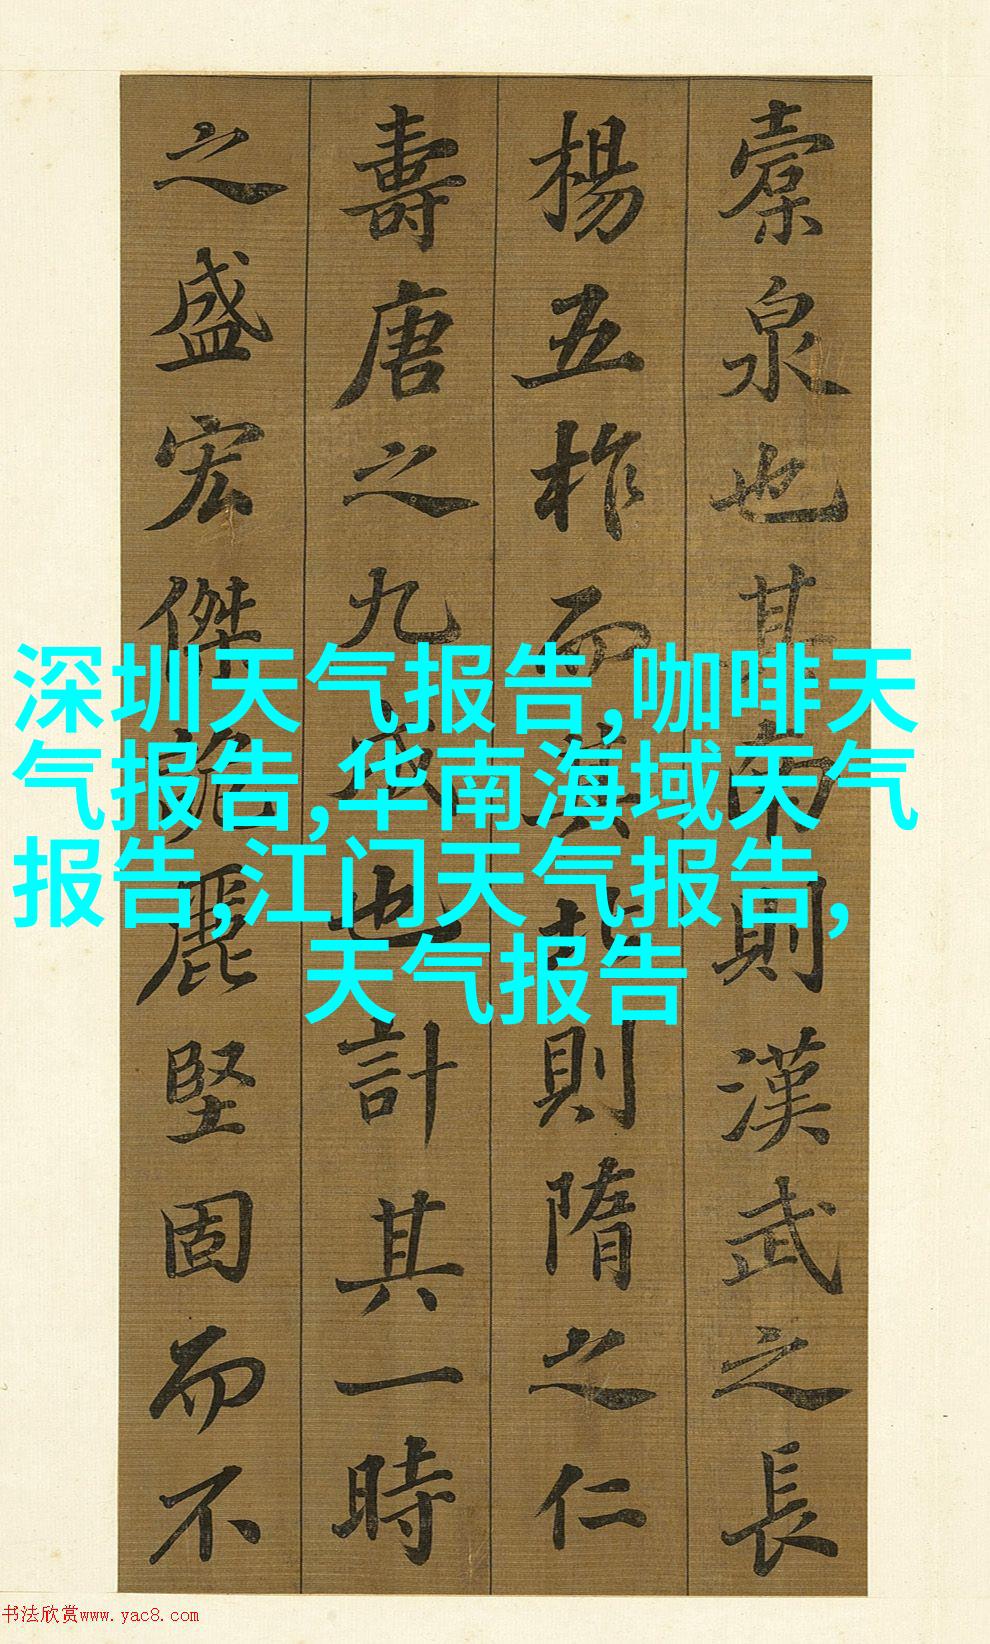 橐泉也其南則漢武之長
楊五柞而其北則隋之仁
壽唐之九成也計其一時
之盛宏傑詭麗堅固而不
深圳天气报告,咖啡天
气报告,华南海域天气
报告,江门天气报告,
天气报告
书法欣赏www.yac8.com